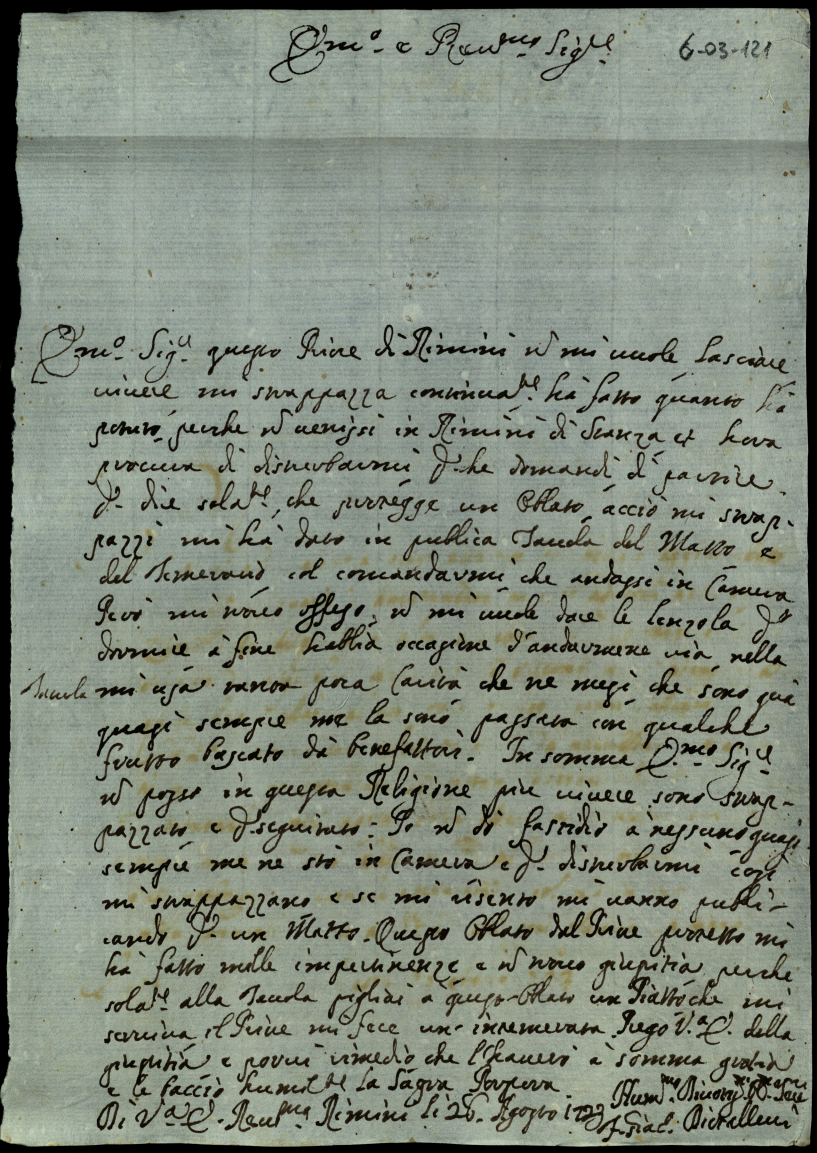 Em.º e Reu.mo Sig.re
6-03-121
Em.º Sig.re questo Priore di Rimini ñ mi uuole lasciare
uiuere mi strappazza continuat.e hà fatto quanto hà
potuto perche ñ uenissi in Rimini di stanza, et hora
procura di disturbarmi che domandi di partire
die solat.e, che protegge un Oblato acciò mi strap-
pazzi mi hà dato in publica Tauola del Matto e
del Temerario col comandarmi che andassi in Camera
Però mi trouo offeso, ñ mi uuole dare le lenzola p.
dormire à fine habbia occasione d'andarmene uia, nella
Tauola mi usa tanta poca Carità che ne mesi che sono quà
quasi sempre me la sono passata con qualche
frutto lasciato dà benefattori. In somma E.mo Sig.re
ñ posso in questa Religione piu uiuere sono strap-
pazzato e p.seguitato. Io ñ dò fastidio à nessuno quasi
sempre me ne stò in Camera e p. disturbarmi così
mi strappazzano e se mi risento mi uanno publi-
cando p. un Matto. Questo Oblato dal Priore protetto mi
hà fatto mille impertinenze e ñ trouo giustitia, perche
solat.e alla Tauola pigliai à questo Oblato un Piatto che mi
seruiua, il Priore mi fece un' intemerata. Prego V.a E. della
giustitia e poui rimedio che l'hauerò à somma gratia
e le baccio humilt.e la Sagra Porpora
Di V.a E. Reu.ma Rimini li 26. Agosto 1723 Hum.mo
F. Giac.